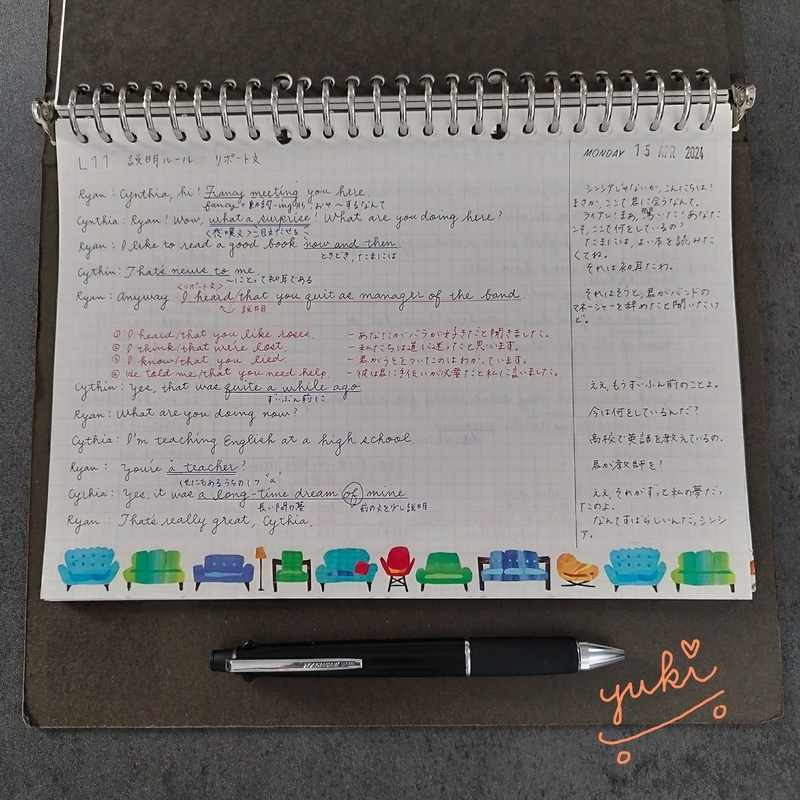 L11 説明ルール リポート文
MONDAY 15 APR 2024
Ryan: Cynthia, hi! Fancy meeting you here.
fancy + 動詞-ing形 おや〜するなんて
Cynthia: Ryan! Wow, what a surprise! What are you doing here?
〈感嘆文〉
Ryan: I like to read a good book now and then.
ときどき, たまには
Cythin: That's news to me.
〜にとって初耳である
〈リポート文〉
Ryan: Anyway I heard/that you quit as manager of the band.
説明
① I heard/that you like roses. - あなたがバラが好きだと聞きました。
② I think/that we're lost. - 私たちは道に迷ったと思います。
③ I know/that you lied. - 君がうそをついたのはわかっています。
④ He told me/that you need help. - 彼は君に手伝いが必要だと私に言いました。
Cythin: Yes, that was quite a while ago
ずいぶん前に
Ryan: What are you doing now?
Cythia: I'm teaching English at a high school.
Ryan: You're a teacher?
他にもあるうちの1つ "a"
Cynhia: Yes, it was a long-time dream of mine
長い間の夢 前の文を少し説明
Ryan: That's really great, Cythia.
シンシアじゃないか、こんにちは!
まさか、ここで君に会うなんて。
ライアン!まあ、驚いた!あなた
こそ、ここで何をしているの?
たまには、よい本を読みた
くてね。
それは初耳だわ。
それはそうと、君がバンドの
マネージャーを辞めたと聞いたけ
ど。
ええ、もうずいぶん前のことよ。
今は何をしているんだ?
高校で英語を教えているの。
君が教師を?
ええ、それがずっと私の夢だっ
たのよ。
なんてすばらしいんだ、シンシ
ア。
yuki